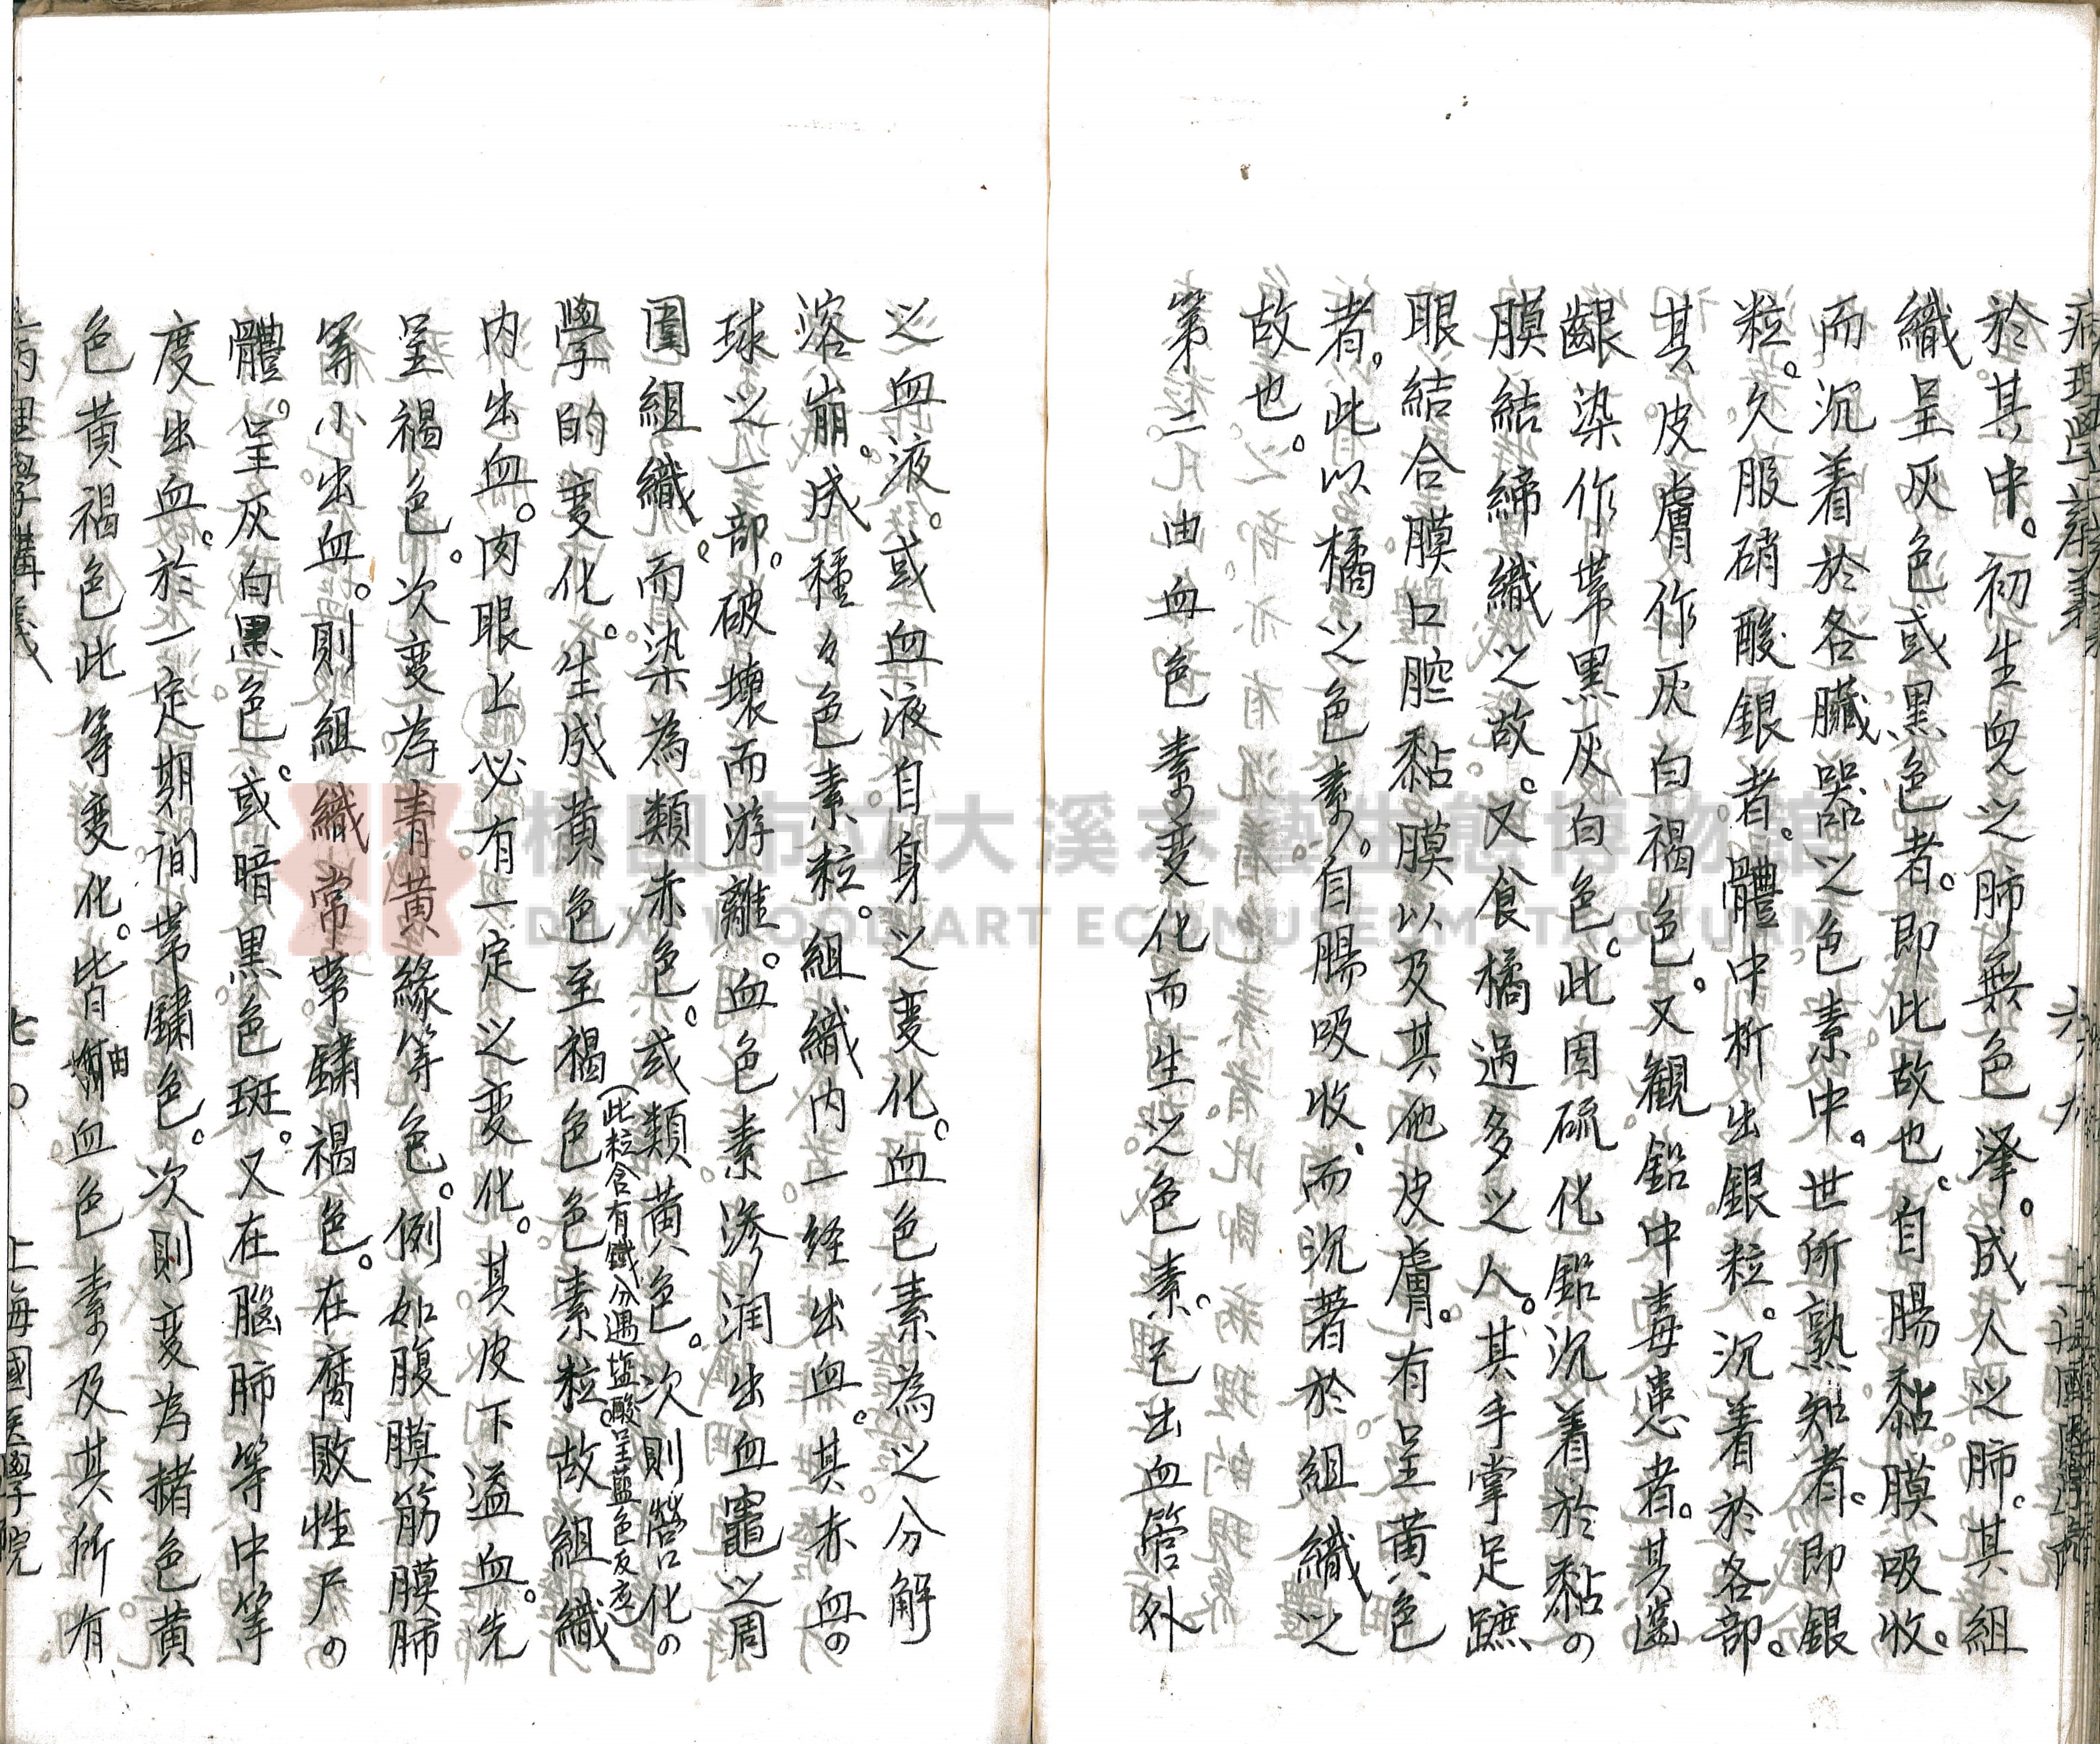 病理學講義 六九 上海國医學院
於其中。初生兒之肺無色澤。成人之肺。其組
織呈灰色或黑色者。即此故也。自腸黏膜吸收。
而沉着於各臟器之色素中。世所熟知者。即銀
粒。久服硝酸銀者。體中析出銀粒。沉着於各部。
其皮膚作灰白褐色。又觀鉛中毒患者。其齒
齦染作帶黑灰白色。此因硫化鉛沉着於黏の
膜結締織之故。又食橘過多之人。其手掌足蹠
眼結合膜口腔黏膜以及其他皮膚。有呈黄色
者。此以橘之色素。自腸吸收。而沉著於組織之
故也。
第二。凡由血色素变化而生之色素。已出血管外
之血液。或血液自身之变化。血色素為之分解
溶崩。成種々色素粒。組織内一経出血。其赤血の
球之一部。破壞而游離。血色素滲润出血竈之周
圍組織。而染為類赤色。或類黄色。次則營化の
學的变化。生成黄色至褐色色素粒。故組織
(此粒含有鐵分遇塩酸呈藍色反応)
内出血。肉眼上必有一定之变化。其皮下溢血。先
呈褐色。次变為青黄綠等色。例如腹膜筋膜肺
等小出血。則組織常帶鏽褐色。在腐敗性尸の
體。呈灰白黒色。或暗黒色斑。又在腦肺等中等
度出血。於一定期间帯鏽色。次則变為赭色黄
色黄褐色此等变化。皆由血色素及其所有
病理學講義 七〇 上海國医學院
桃園市立大溪木藝生態博物館
DAXI WOOD ART ECOMUSEUM, TAOYUAN